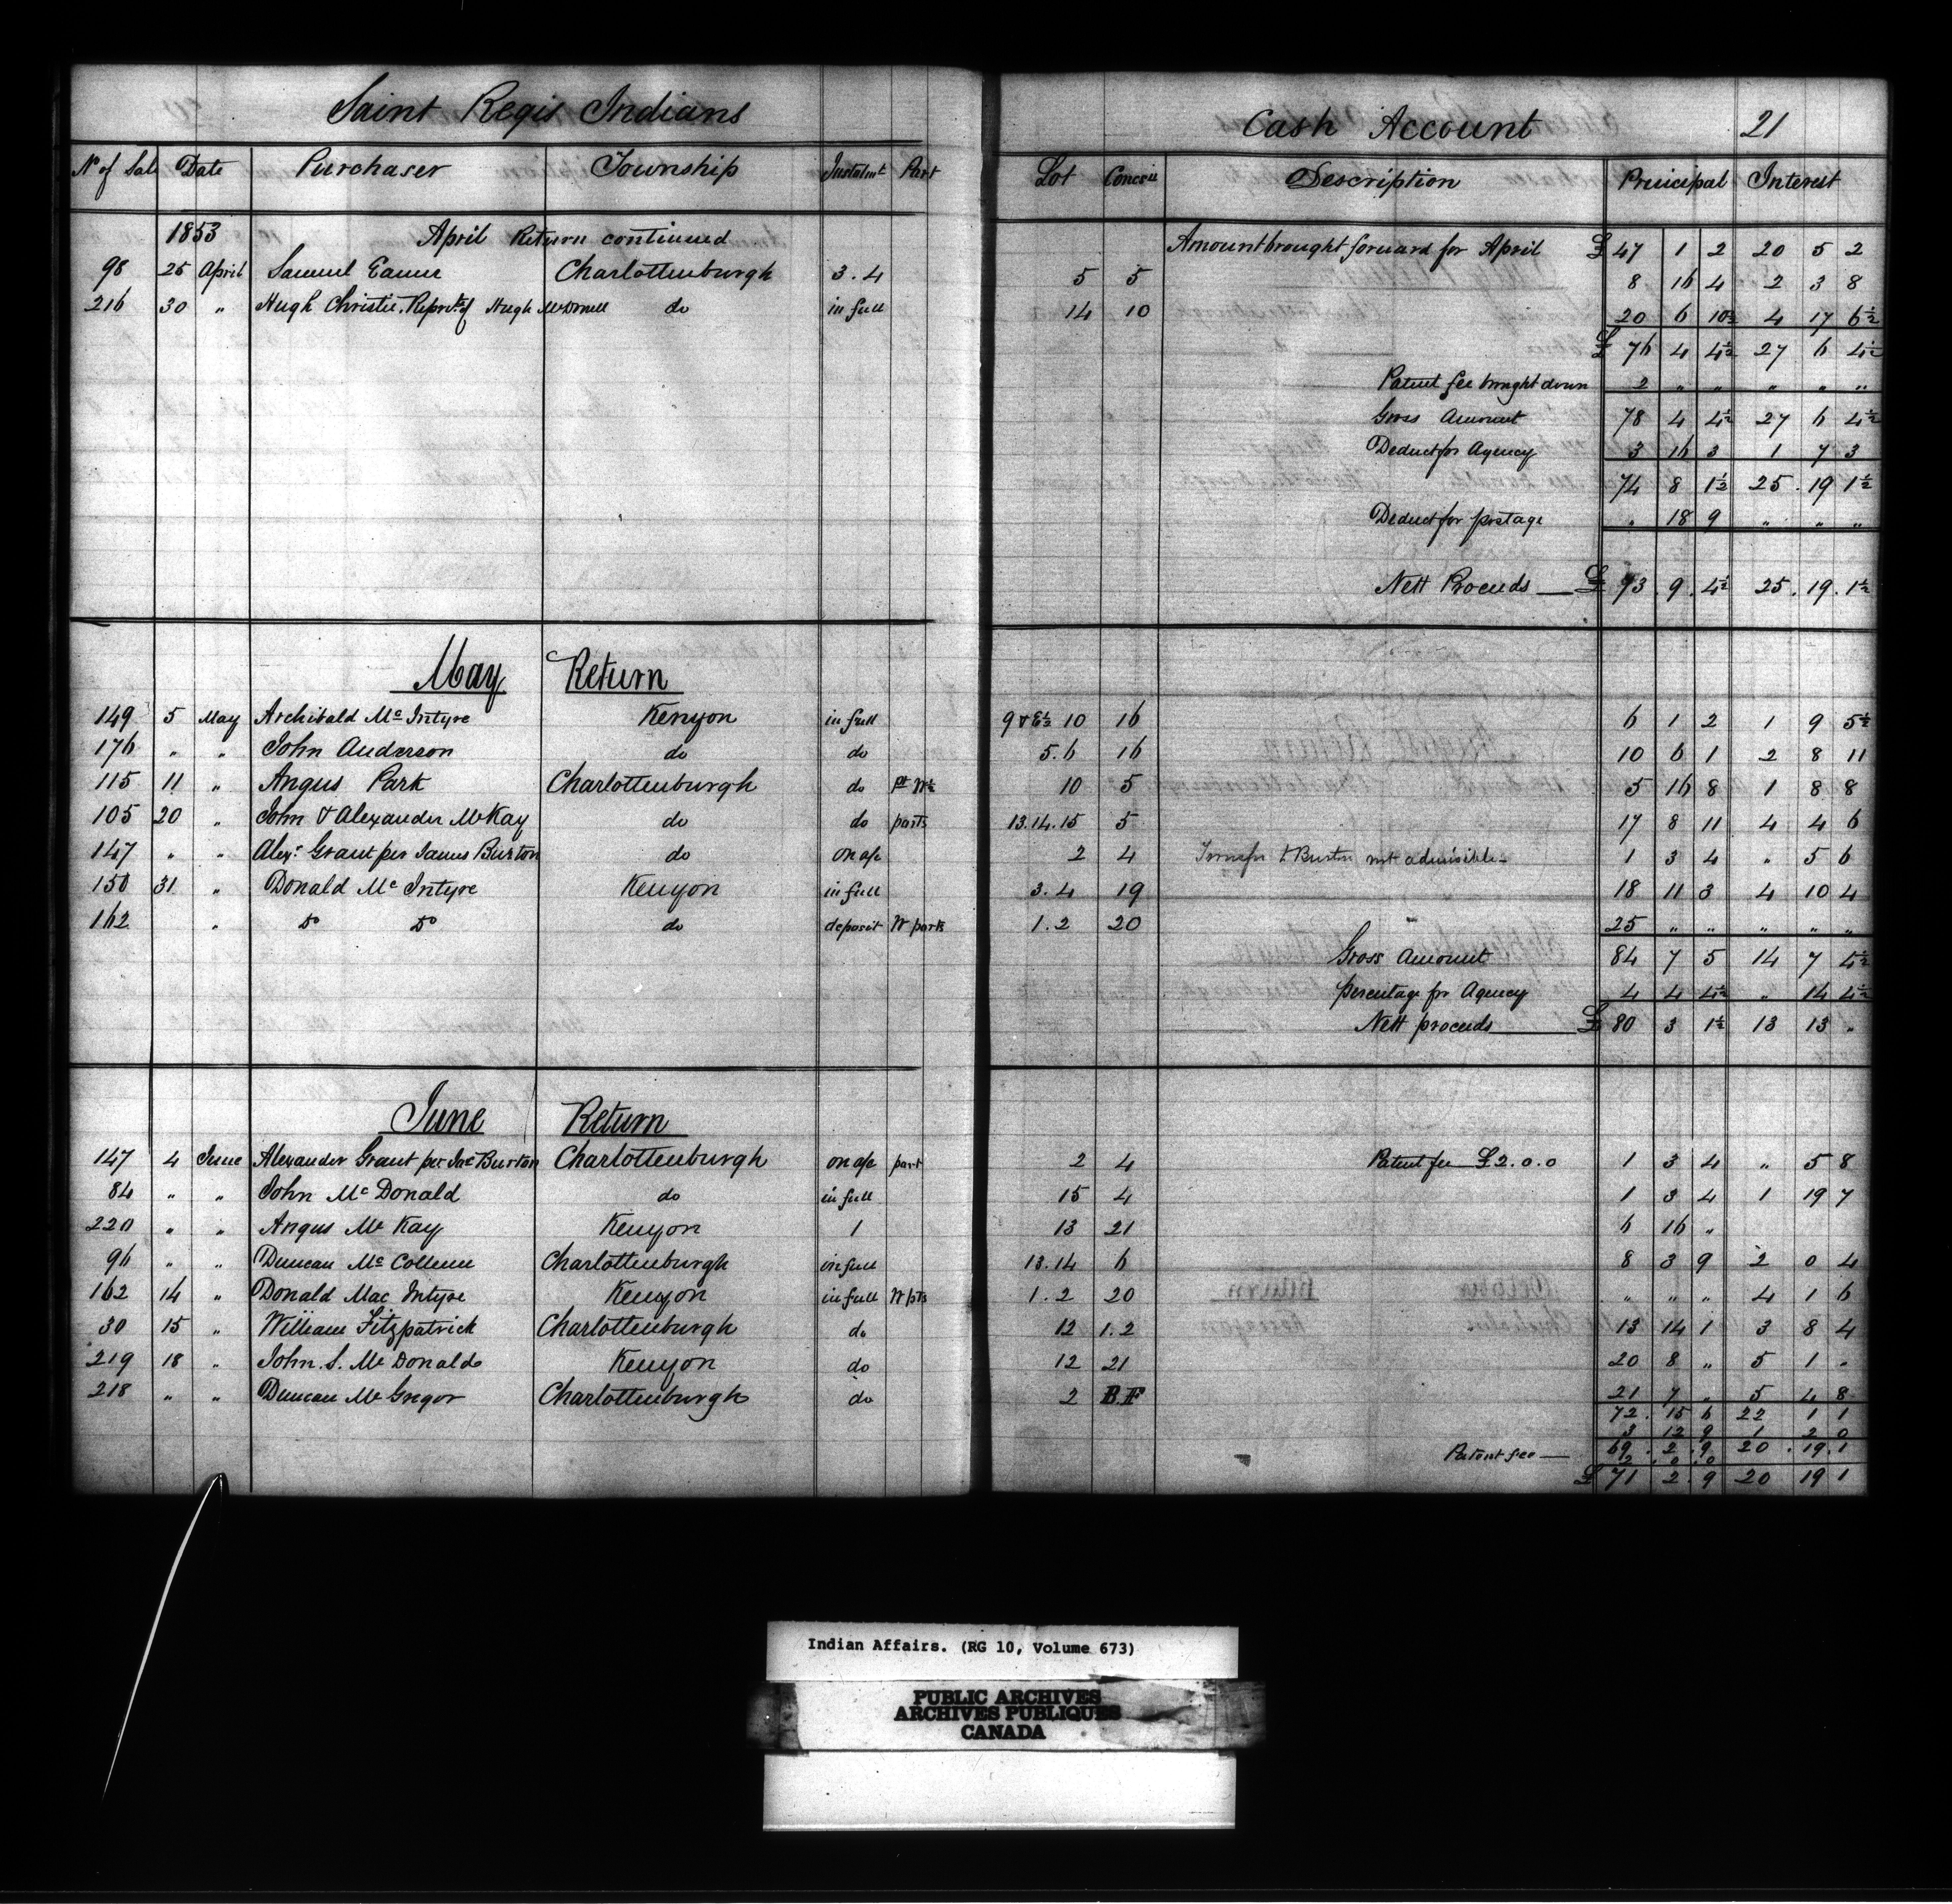 Saint Regis Indians Cash Account 21
No of Sale Date Purchaser Township Instalmt Part Lot Concess Description Principal Interest
1853 April Return continued Amount brought forward for April £ 47 1 2 20 5 2
98 25 April Samuel Eamer Charlottenburgh 3.4 5 5 8 16 4 2 3 8
216 30 " Hugh Christie Reprve of Hugh McDonell do in full 14 10 20 6 10½ 4 17 6½
£ 76 4 4½ 27 6 4½
Patent fee brought down 2 " " " " "
Gross Amount 78 4 4½ 27 6 4½
Deduct for Agency 3 16 3 1 7 3
74 8 1½ 25 . 19 1½
Deduct for postage " 18 9 " " "
Nett Proceeds — £ 73 . 9 . 4½ 25 . 19 . 1½
May Return
149 5 May Archibald Mc Intyre Kenyon in full 9 & E½ 10 16 6 1 2 1 9 5½
176 " " John Anderson do do 5.6 16 10 6 1 2 8 11
115 11 " Angus Park Charlottenburgh do pt W½ 10 5 5 16 8 1 8 8
105 20 " John & Alexander McKay do do parts 13.14.15 5 17 8 11 4 4 6
147 " " Alexr Grant per James Burton do on a/c 2 4 Transfer to Burton not admissible - 1 3 4 " 5 6
150 31 " Donald Mc Intyre Kenyon in full 3.4 19 18 11 3 4 10 4
162 " do do do deposit W parts 1.2 20 25 " " " " "
Gross Amount 84 7 5 14 7 4½
percentage for Agency 4 4 4½ " 14 4½
Nett proceeds — £ 80 3 1½ 13 13 "
June Return
147 4 June Alexander Grant per Jas Burton Charlottenburgh on a/c part 2 4 Patent fee £2.0.0 1 3 4 " 5 8
84 " " John Mc Donald do in full 15 4 1 3 4 1 19 7
220 " " Angus Mc Kay Kenyon 1 13 21 6 16 "
96 " " Duncan Mc Charlottenburgh in full 13.14 6 8 3 9 2 0 4
162 14 " Donald Mac Intyre Kenyon in full W pts 1.2 20 " " " 4 1 6
30 15 " William Fitzpatrick Charlottenburgh do 12 1.2 13 14 1 3 8 4
219 18 " John S. Mc Donald Kenyon do 12 21 20 8 " 5 1 "
218 " " Duncan Mc Gregor Charlottenburgh do 2 B.F 21 7 " 5 4 8
72 . 15 6 22 1 1
3 12 9 1 2 0
69 . 2 . 9 20 . 19 . 1
Patent fee — 2 . 0 . 0
£ 71 2 . 9 20 19 1
Indian Affairs. (RG 10, Volume 673)
PUBLIC ARCHIVES
ARCHIVES PUBLIQUES
CANADA